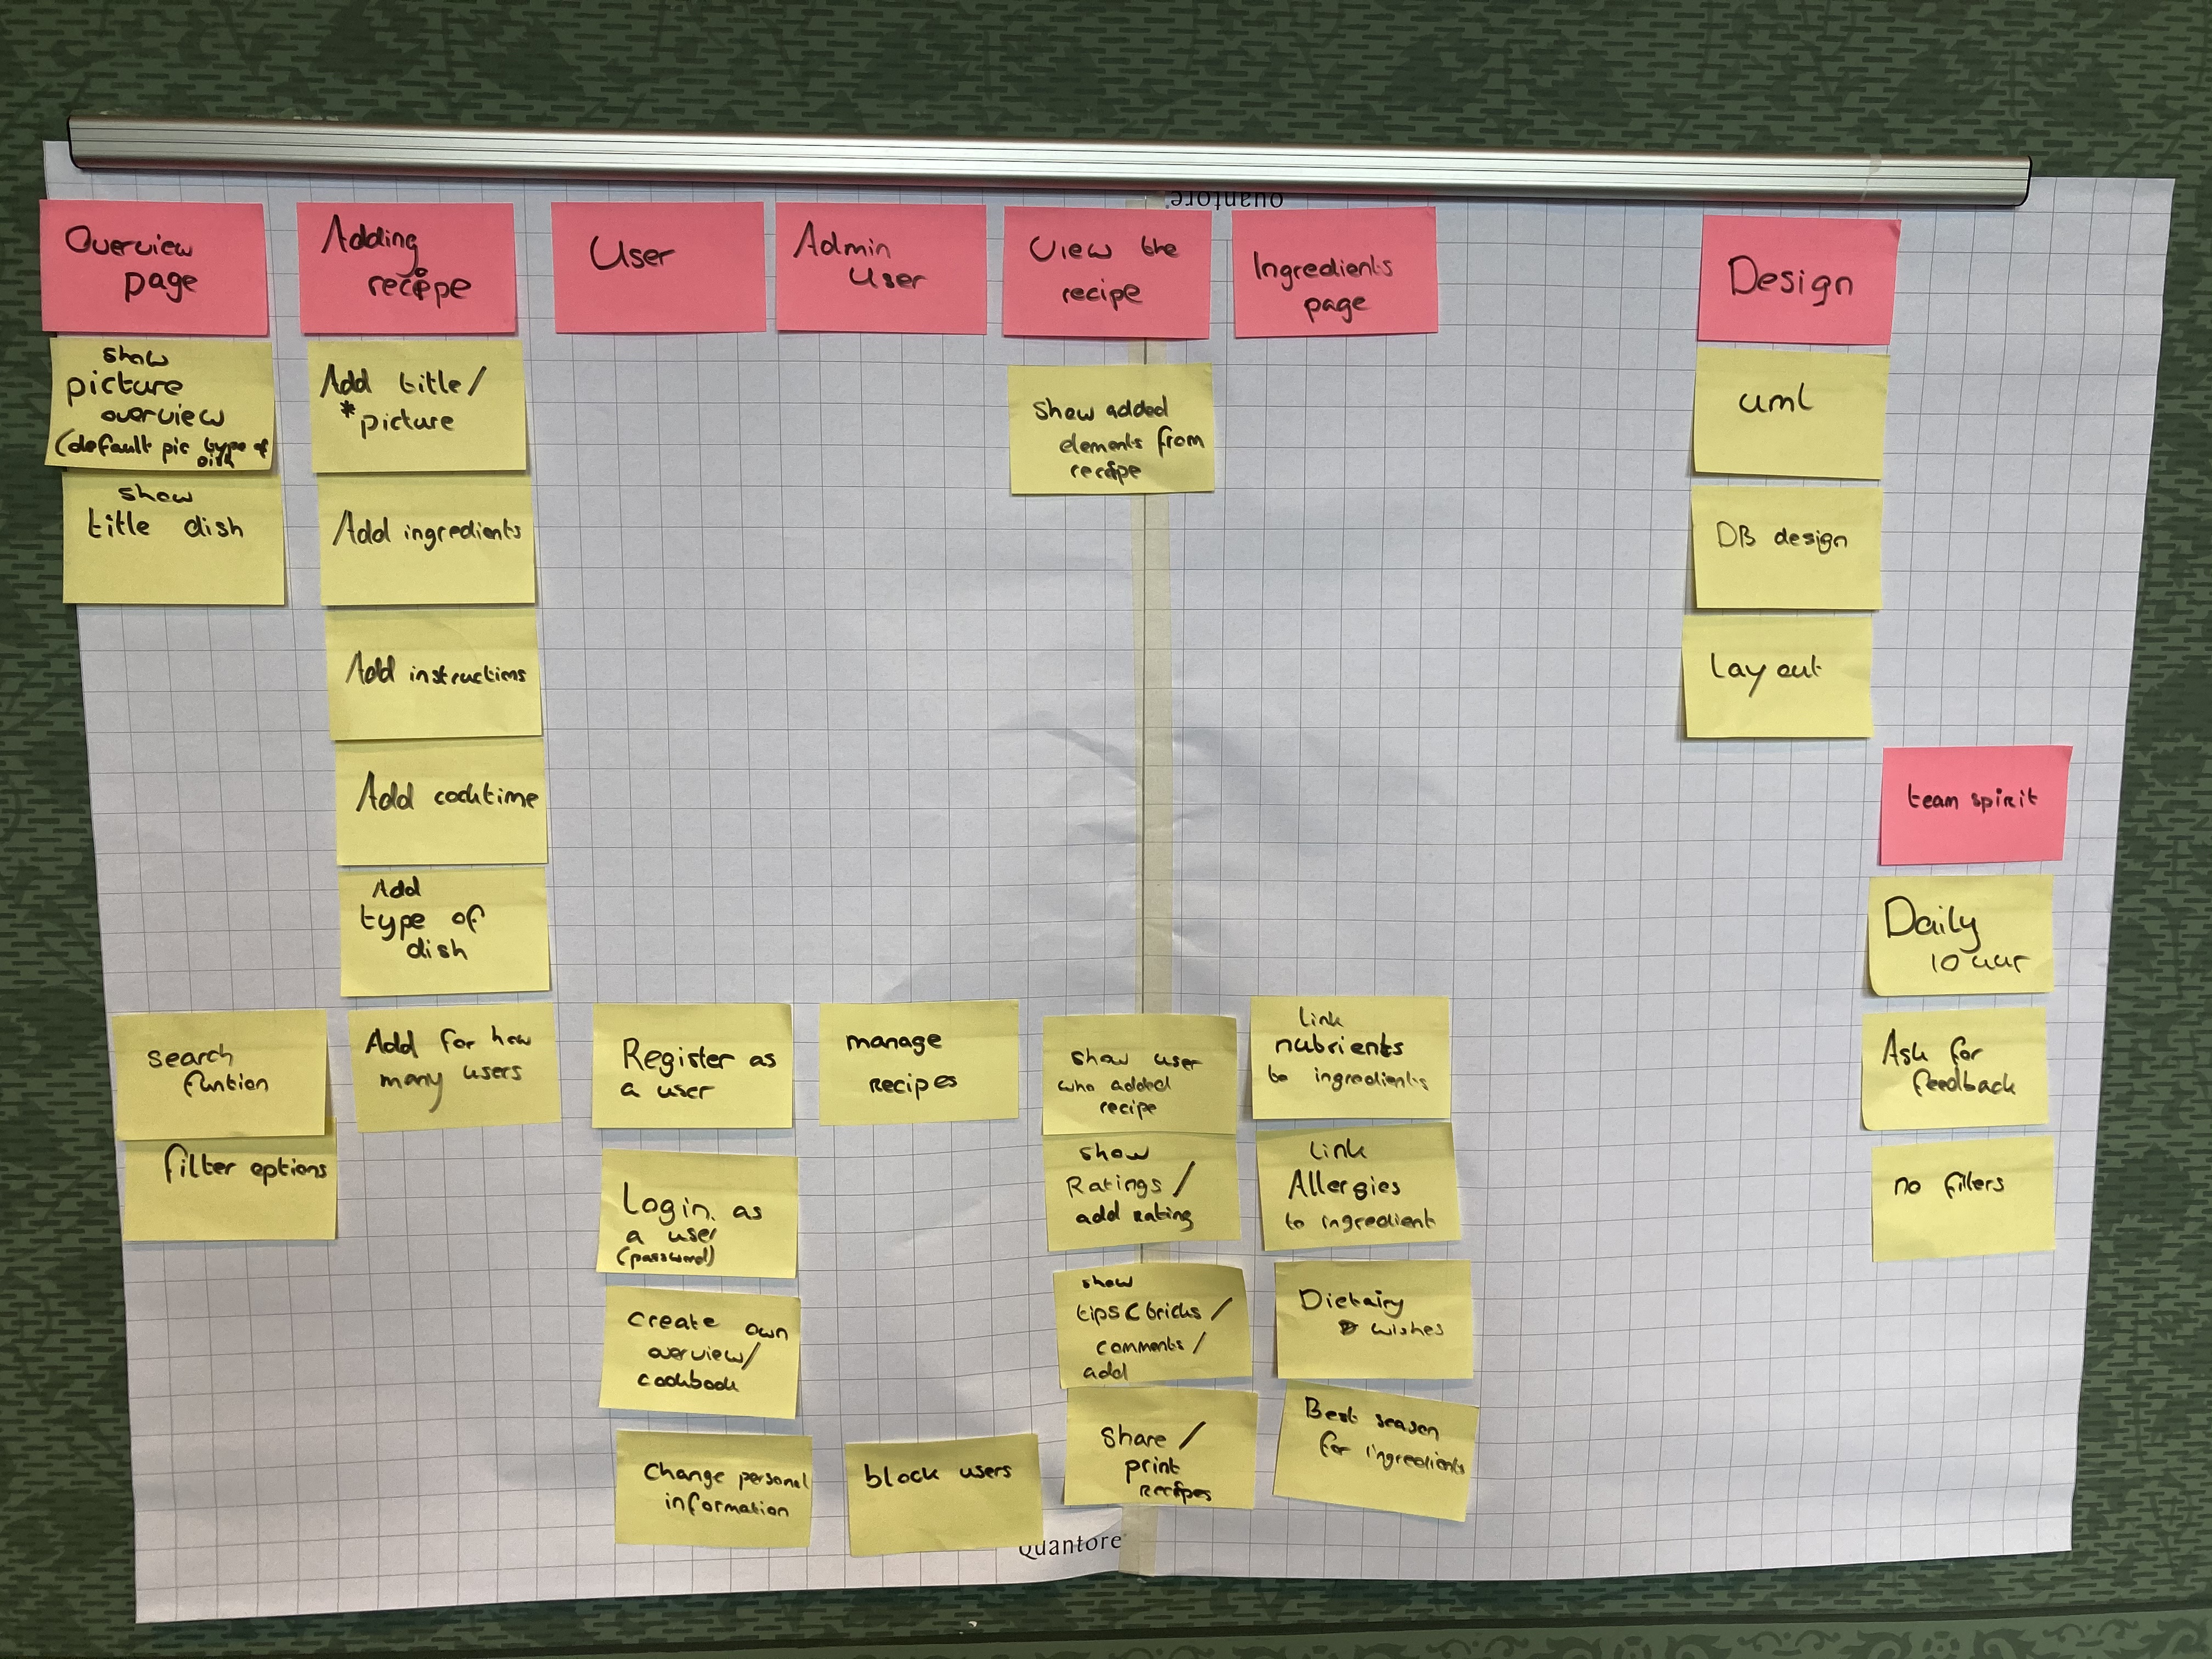 Quantore
Overview
page
show
picture
overview
(default pic type of
dish
show
title dish
search
funtion
filter options
Adding
recipe
Add title/
*picture
Add ingredients
Add instructions
Add cooktime
Add
type of
dish
Add for how
many users
User
Register as
a user
Login. as
a user
(password)
create own
overview/
cookbook
Change personal
information
Admin
User
manage
recipes
block users
View the
recipe
Show added
elements from
recipe
show user
who added
recipe
show
Ratings /
add Rating
show
tips & tricks /
comments /
add
Share /
print
recipes
Ingredients
page
Link
nutrients
to ingredients
Link
Allergies
to ingredient
Dietairy
wishes
Best season
for ingredients
Design
uml
DB design
Lay out
team spirit
Daily
10 uur
Ask for
feedback
no fillers
Quantore